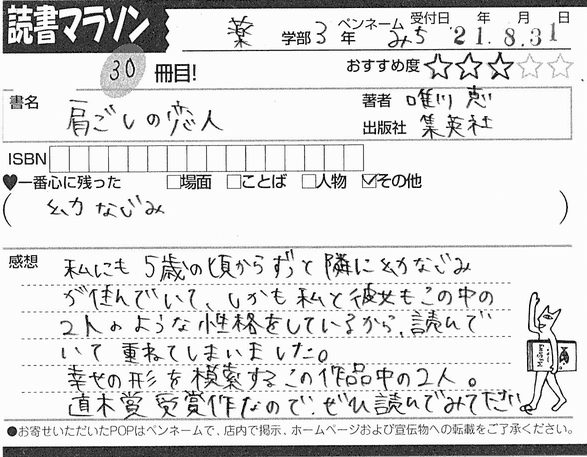 読書マラソン
薬 学部 3 年 ペンネーム みち 受付日 '21年 8月 31日
30 冊目!
おすすめ度 ☆☆☆☆☆
書名 肩ごしの恋人
著者 唯川 恵
出版社 集英社
ISBN
♥一番心に残った □場面 □ことば □人物 ☑その他
( 幼なじみ )
感想 私にも5歳の頃からずっと隣に幼なじみ
が住んでいて、しかも私と彼女もこの中の
2人のような性格をしているから、読んで
いて重ねてしまいました。
幸せの形を模索するこの作品中の2人。
直木賞受賞作なので、ぜひ読んでみてださい
●お寄せいただいたPOPはペンネームで、店内で掲示、ホームページおよび宣伝物への転載をご了承ください。